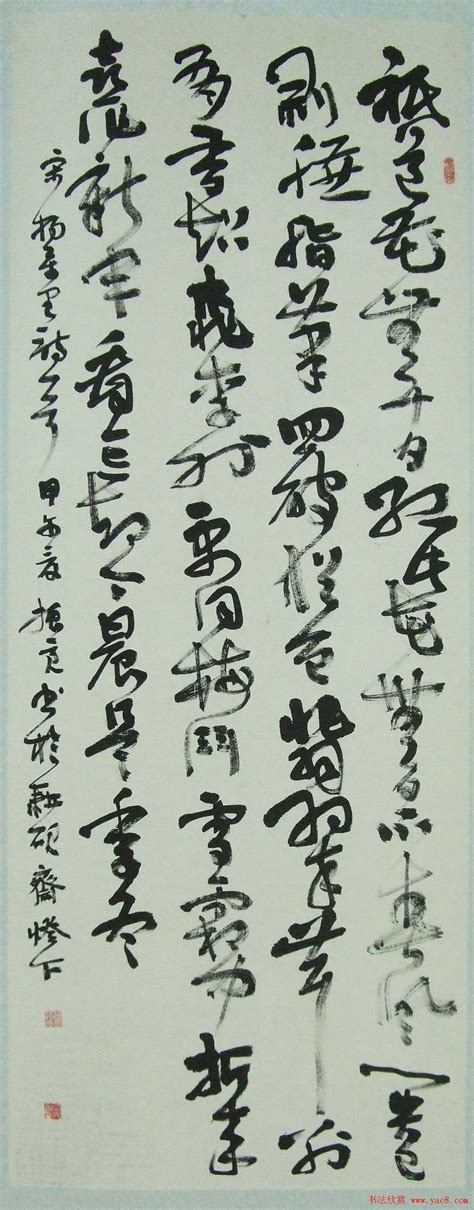 祗道花無十日紅此花無日不春風一尖已
剝臙脂筆四破猶包翡翠茸別
有香超桃李外更同梅鬥雪霜中折來
喜作新年看忘却今晨是季冬
宋楊万里詩一首 甲午夏 振書於耕硯齋燈下
书法欣赏 www.yac8.com